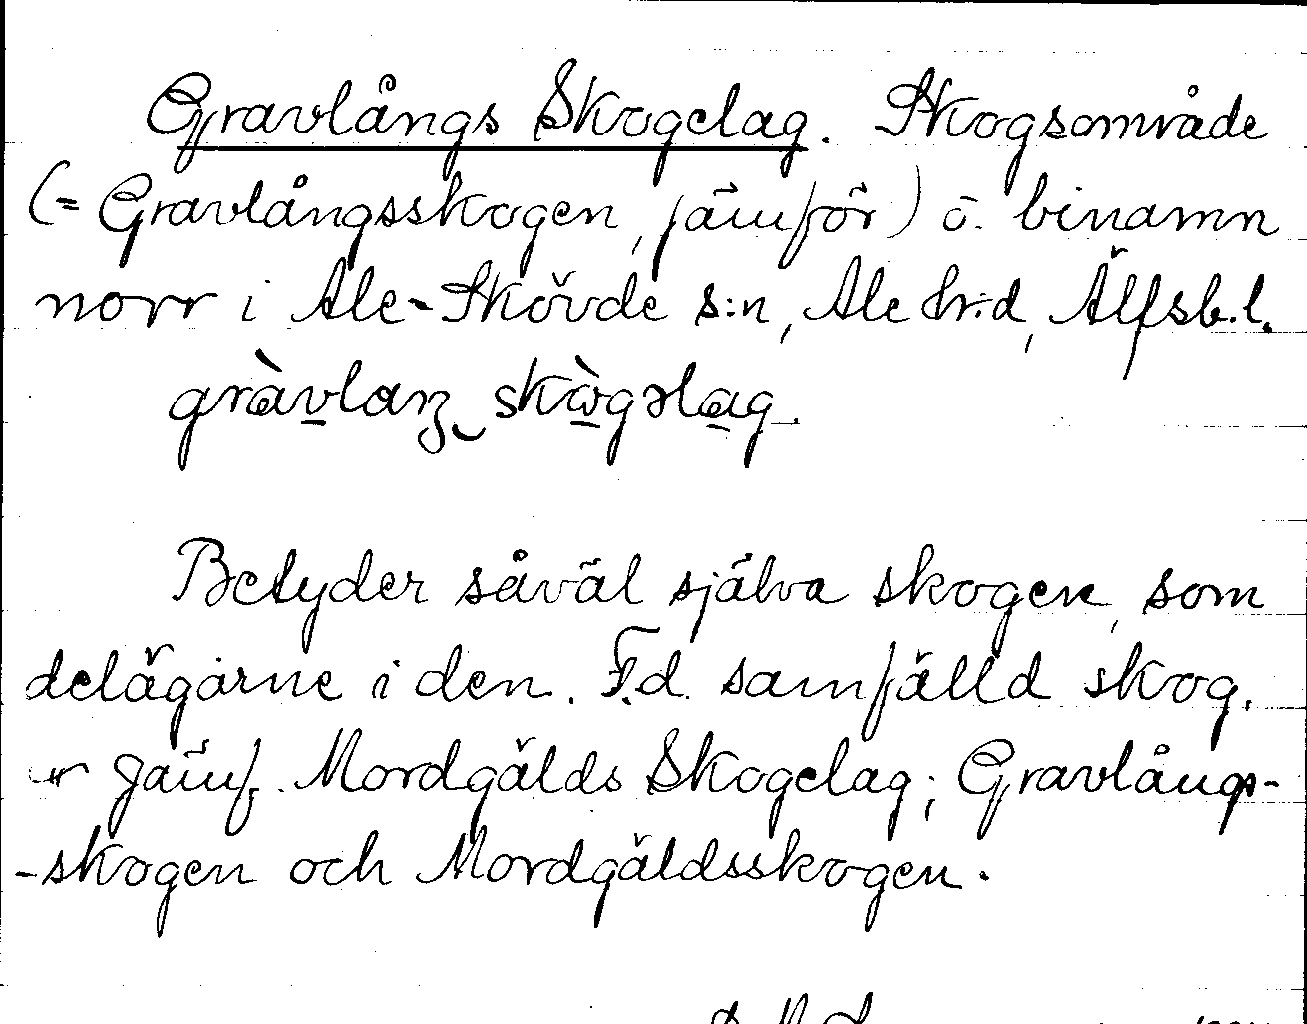 Gravlångs Skogelag. Skogsområde
(= Gravlångsskogen, jämför) o. binamn
norr i Ale-Skövde s:n, Ale hr:d, Älfsb.l.
gràvlaŋz skògəlag.
Betyder såväl själva skogen, som
delägarne i den. F.d. samfälld skog.
Jämf. Mordgälds Skogelag; Gravlångs-
-skogen och Mordgäldsskogen.